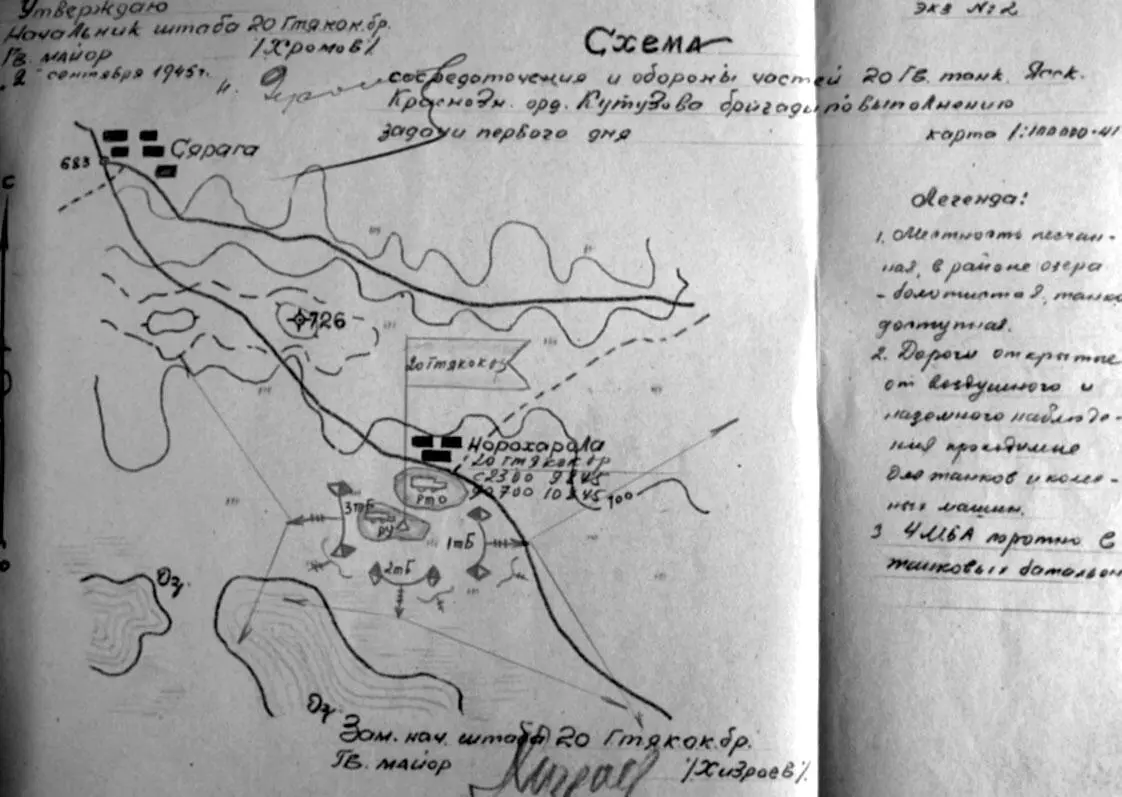 Утверждаю
Начальник штаба 20 Гтякок.бр.
Гв. майор /Хромов/
2 сентября 1945г.
Экз № 2
Схема
сосредоточения и обороны частей 20 Гв. танк. Ясск.
Краснозн. орд. Кутузова бригады по выполнению
задачи первого дня
карта 1:100000-41
683
Сярага
С
726
20 гтякокбр
Норохарола
20 гтякокбр
с 2300 9.8.45
до 0700 10.8.45
рто
ру
3тб
1тб
2тб
700
Оз.
Оз.
Ю
Зам. нач. штаба 20 Гтякок.бр.
Гв. майор /Хизроев/
Легенда:
1. Местность песчан-
ная, в районе озера
-болотистая, танко
доступная.
2. Дороги открытые
от воздушного и
наземного наблюде-
ния проходимые
для танков и колес-
ных машин.
3 4 МБА поротно в
танковых батальон